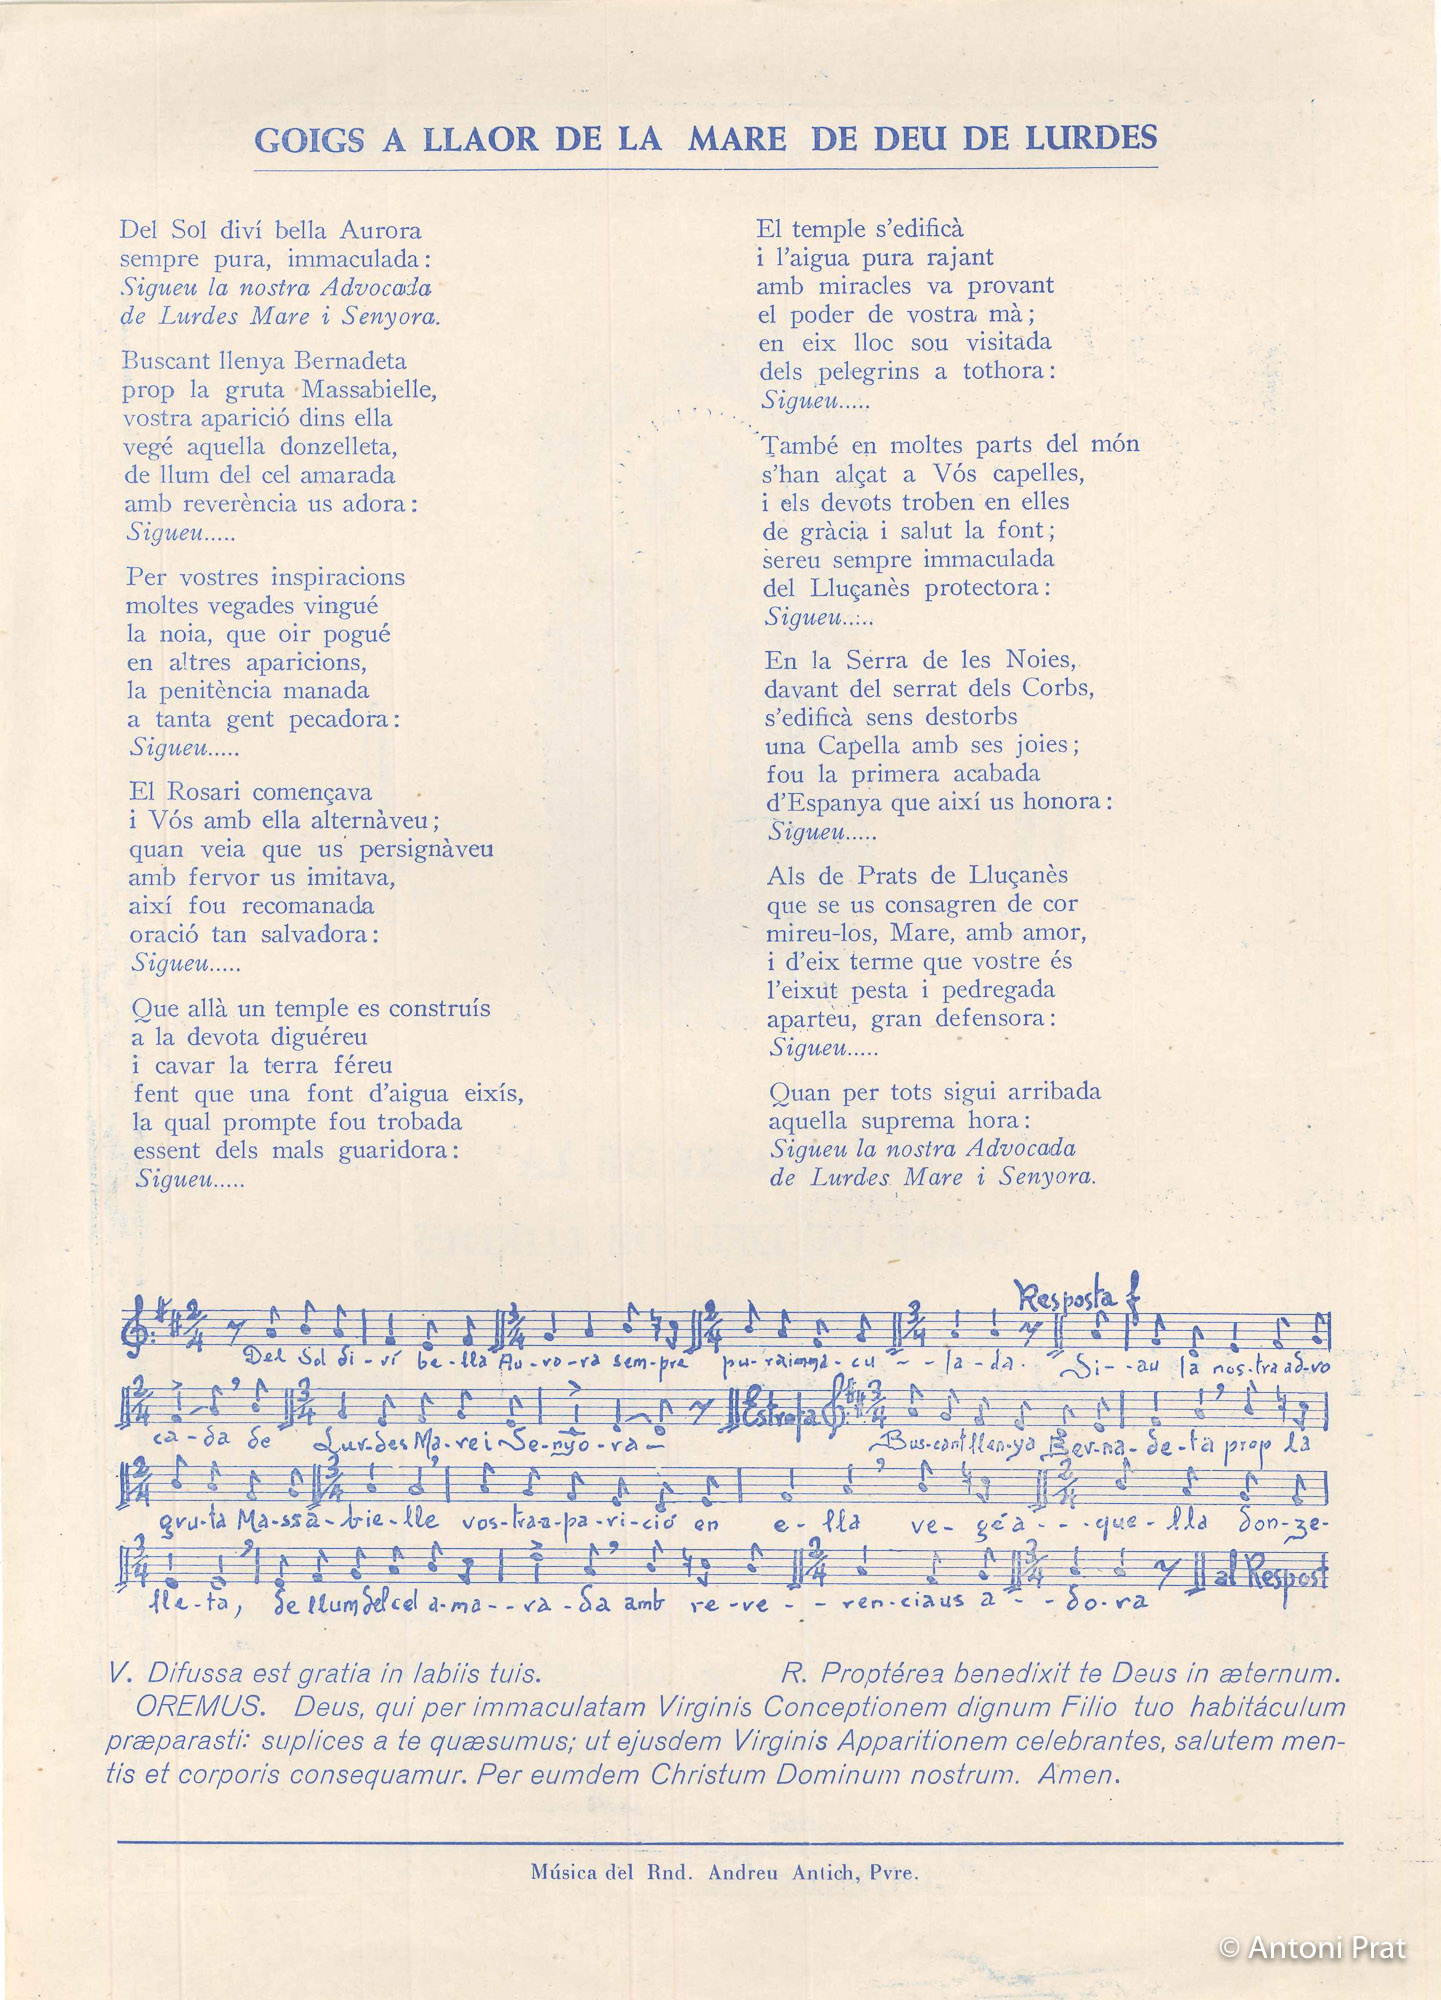 GOIGS A LLAOR DE LA MARE DE DEU DE LURDES
Del Sol diví bella Aurora
sempre pura, immaculada:
Sigueu la nostra Advocada
de Lurdes Mare i Senyora.
Buscant llenya Bernadeta
prop la gruta Massabielle,
vostra aparició dins ella
vegé aquella donzelleta,
de llum del cel amarada
amb reverència us adora:
Sigueu.....
Per vostres inspiracions
moltes vegades vingué
la noia, que oir pogué
en altres aparicions,
la penitència manada
a tanta gent pecadora:
Sigueu.....
El Rosari començava
i Vós amb ella alternàveu;
quan veia que us persignàveu
amb fervor us imitava,
així fou recomanada
oració tan salvadora:
Sigueu.....
Que allà un temple es construís
a la devota diguéreu
i cavar la terra féreu
fent que una font d'aigua eixís,
la qual prompte fou trobada
essent dels mals guaridora:
Sigueu.....
El temple s'edificà
i l'aigua pura rajant
amb miracles va provant
el poder de vostra mà;
en eix lloc sou visitada
dels pelegrins a tothora:
Sigueu.....
També en moltes parts del món
s'han alçat a Vós capelles,
i els devots troben en elles
de gràcia i salut la font;
sereu sempre immaculada
del Lluçanès protectora:
Sigueu.....
En la Serra de les Noies,
davant del serrat dels Corbs,
s'edificà sens destorbs
una Capella amb ses joies;
fou la primera acabada
d'Espanya que així us honora:
Sigueu.....
Als de Prats de Lluçanès
que se us consagren de cor
mireu-los, Mare, amb amor,
i d'eix terme que vostre és
l'eixut pesta i pedregada
aparteu, gran defensora:
Sigueu.....
Quan per tots sigui arribada
aquella suprema hora:
Sigueu la nostra Advocada
de Lurdes Mare i Senyora.
Resposta f
2/4 3/4 2/4 3/4
Del Sol di-ví be-lla Au-ro-ra sem-pre pu-raimma-cu - - la-da. Si--au la nos-tra ad-vo
2/4 3/4 Estrofa 3/4
ca-da de Lur-des Ma-re i Se-nyo-ra- Bus-cant llen-ya Ber-na-de-ta prop la
2/4 3/4 2/4
gru-ta Ma-ssa-bie-lle vos-traa-pa-ri-ció en e-lla ve-géa---que-lla don-ze-
3/4 2/4 3/4 al Respost
lle-ta, de llum del cel a-ma--ra-da amb re-ve--ren-ciaus a--do-ra
V. Difussa est gratia in labiis tuis. R. Proptérea benedixit te Deus in æternum.
OREMUS. Deus, qui per immaculatam Virginis Conceptionem dignum Filio tuo habitáculum
præparasti: suplices a te quæsumus; ut ejusdem Virginis Apparitionem celebrantes, salutem men-
tis et corporis consequamur. Per eumdem Christum Dominum nostrum. Amen.
Música del Rnd. Andreu Antich, Pvre.
© Antoni Prat